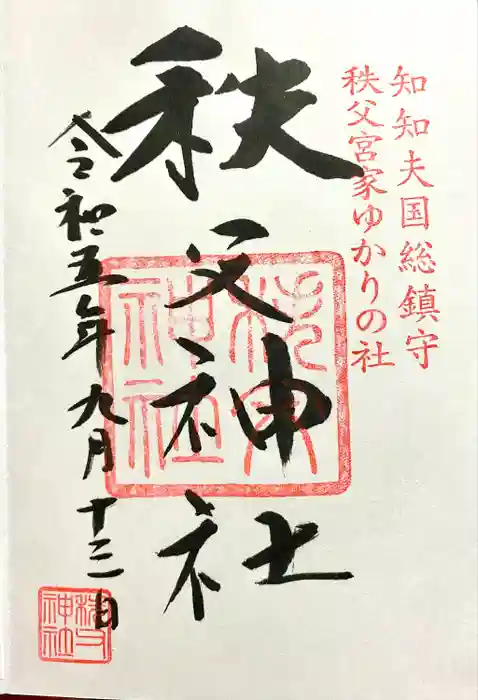 知知夫国総鎮守
秩父宮家ゆかりの社
秩父神社
秩父神社
令和五年九月十三日
秩父神社